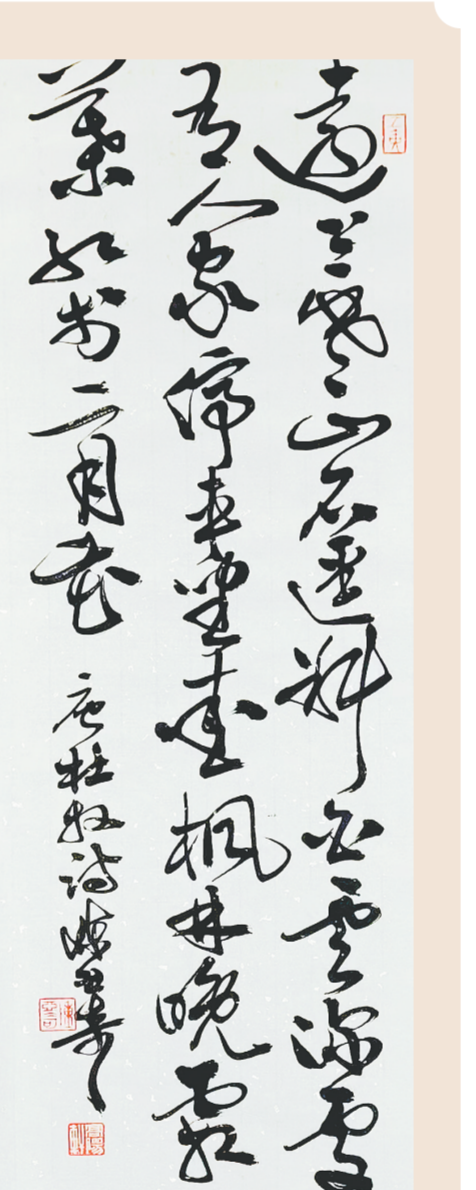 遠上寒山石逕斜白雲深處
有人家停車坐愛楓林晚霜
葉紅於二月花
唐杜牧詩